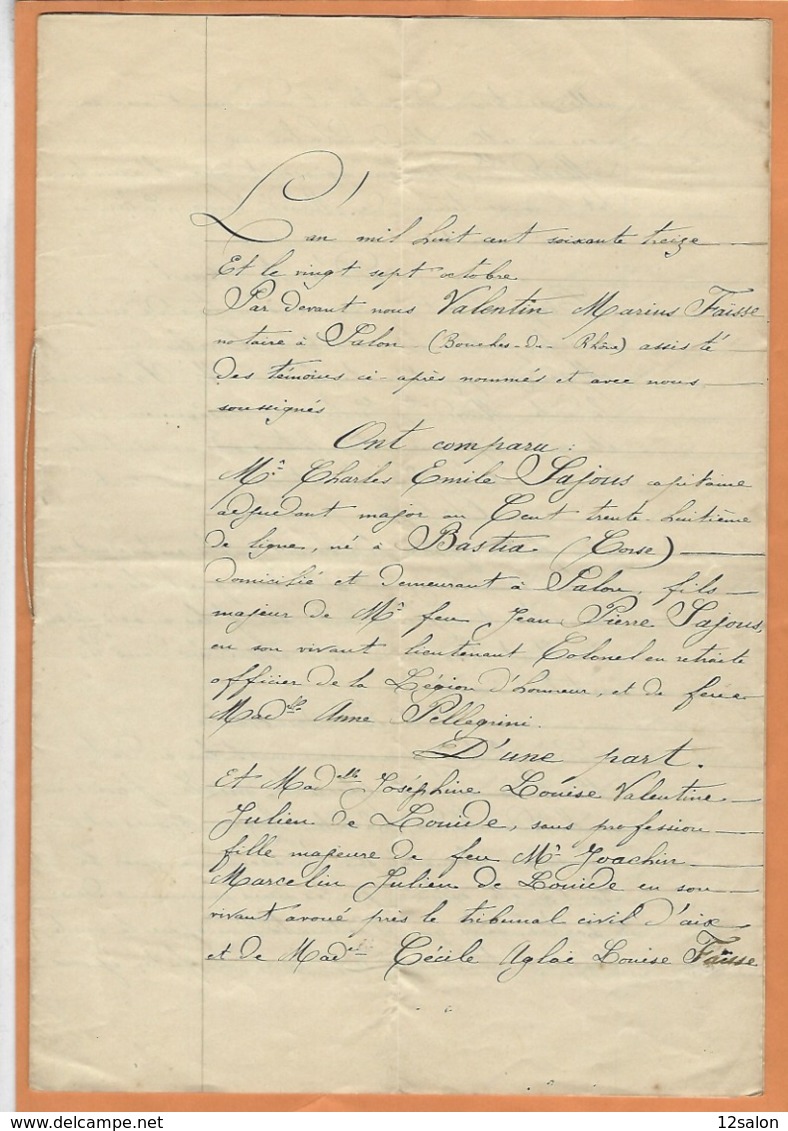 L'an mil huit cent soixante treize
Et le vingt sept octobre
Par devant nous Valentin Marius Faïsse
notaire à Salon (Bouches-du-Rhône) assisté
des témoins ci-après nommés et avec nous
soussignés
Ont comparu :
Mr Charles Emile Sajous capitaine
adjudant major au Cent trente huitième
de ligne, né à Bastia (Corse)
domicilié et demeurant à Salon, fils
majeur de Mr feu Jean Pierre Sajous,
en son vivant lieutenant Colonel en retraite
officier de la Légion d'honneur, et de feue
Made Anne Pellegrini.
D'une part.
Et Madelle Joséphine Louise Valentine
Julien de Louide, sans profession
fille majeure de feu Mr Joachin
Marcelin Julien de Louide en son
vivant avoué près le tribunal civil d'aix
et de Made Cécile Aglaé Louise Faïsse
delcampe.net
12salon